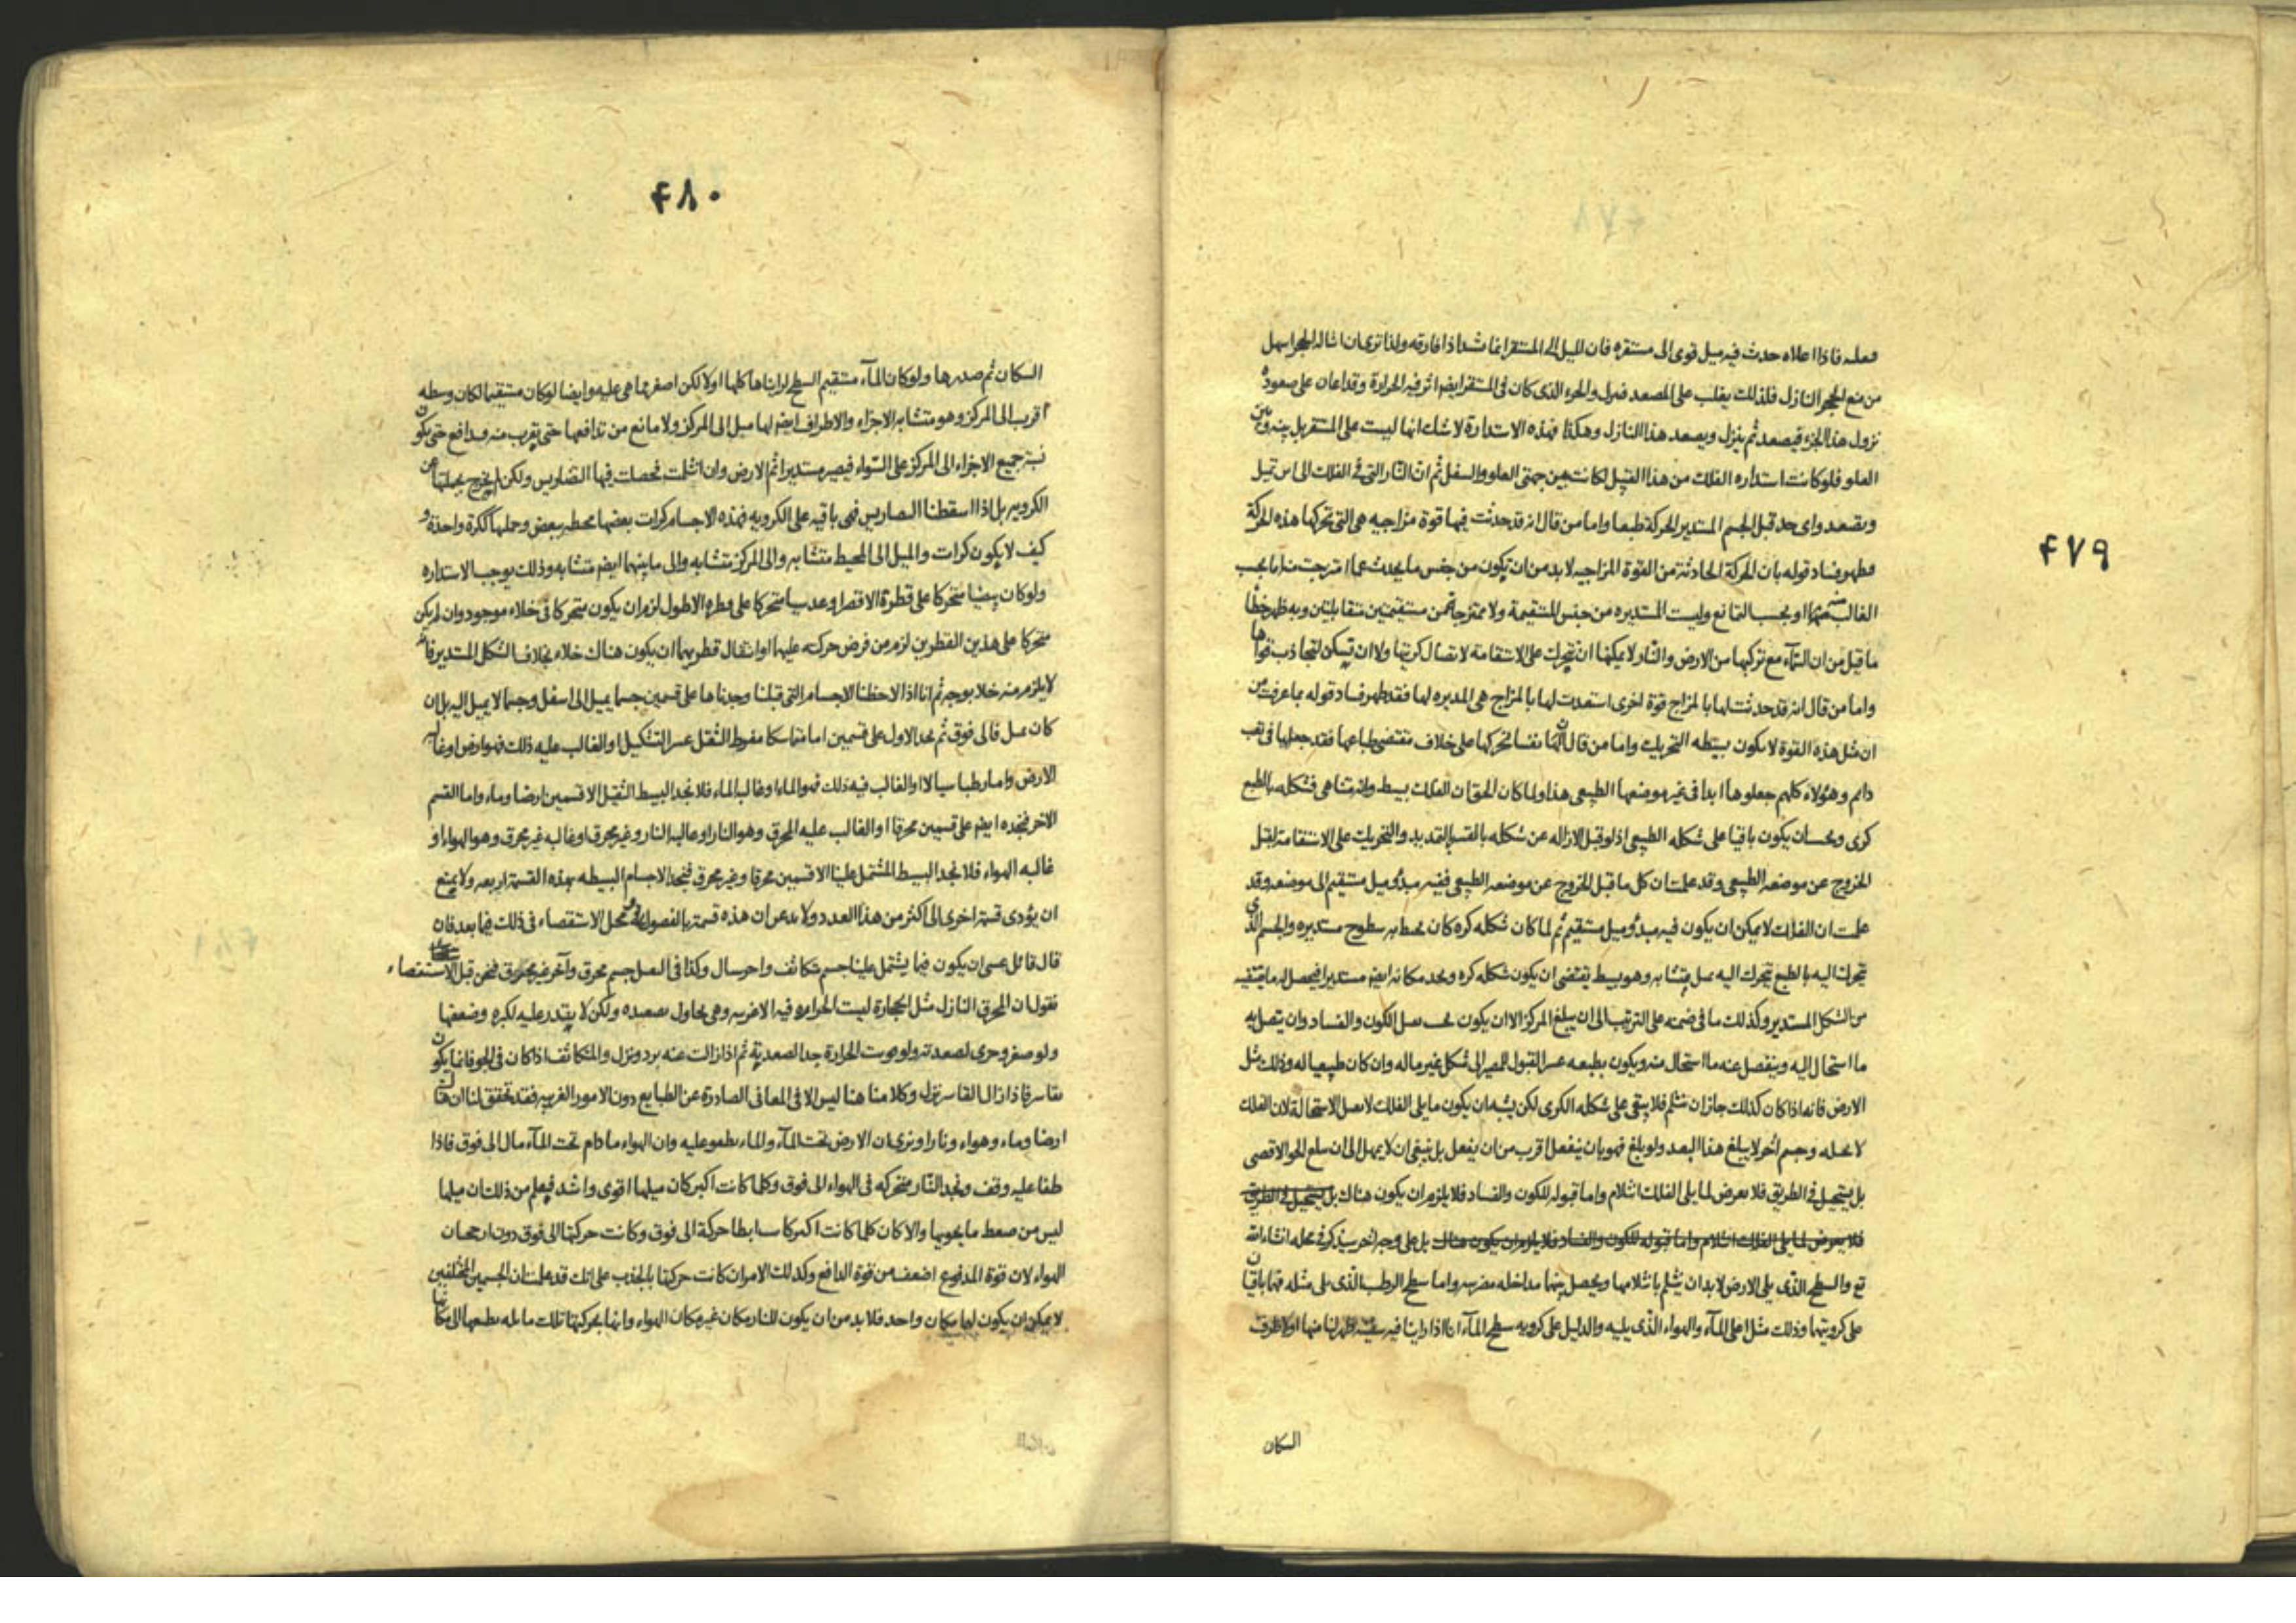 ۴۷۹
فعله فاذا اعلاه حدث فيه ميل قوى الى مستقره فان الميل الى المستقر انما شد اذا فارقه ولذا ترى ان اشاله الحجر اسهل
من منع الحجر النازل فلذلك يغلب على المصعد فنزل والجزء الذى كان فى المستقر ايضم اثر فيه الحرارة وقد اعان على صعوده
نزول هذا الجزء فيصعد ثم ينزل ويصعد هذا النازل وهكذا فهذه الاستدارة لا شك انها ليست على المستقر بل بينه وبين
العلو فلو كانت استداره الفلك من هذا القبيل لكانت بين جهتى العلو والسفل ثم ان النار التى فى الفلك الى اين تميل
وتصعد واى حد قبل الجسم المستدير الحركة طبعا واما من قال انه قد حدثت فيها قوة مزاجيه هى التى تحركها هذه الحركة
فظهر فساد قوله بان الحركة الحادثة من القوة المزاجيه لا بد من ان يكون من جنس ما يحدث عما امتزجت منه اما بحسب
الغالب منها او بحسب التمانع وليست المستديره من جنس المستقيمة ولا ممتزجا من مستقيمين متقابلين وبه ظهر خطأ
ما قيل من ان السمآء مع تركبها من الارض والنار لا يمكنها ان تتحرك على الاستقامة لاتصال كريتها ولا ان تسكن لتجاذب قواها
واما من قال انه قد حدثت لها بالمزاج قوة اخرى استعدت لها بالمزاج هى المديره لها فقد ظهر فساد قوله بما عرفت من
ان مثل هذه القوة لا يكون بسيطه التحريك واما من قال ان لها نفسا تحركها على خلاف مقتضى طباعها فقد جعلها فى تعب
دائم وهؤلاء كلهم جعلوها ابدا فى غير موضعها الطبيعى هذا ولما كان الحق ان الفلك بسيط وانه متناهى فشكله بالطبع
كرى ويجب ان يكون باقيا على شكله الطبيعى اذ لو قبل الازاله عن شكله بالقسر التمديد والتحريك على الاستقامة لقبل
الخروج عن موضعه الطبيعى وقد علمت ان كل ما قبل الخروج عن موضعه الطبيعى ففيه مبدؤ ميل مستقيم الى موضعه وقد
علمت ان الفلك لا يمكن ان يكون فيه مبدؤ ميل مستقيم ثم لما كان شكله كره كان يحيط به سطوح مستديره والجسم الذى
تتحرك اليه بالطبع تتحرك اليه بميل متشابه وهو بسيط يقتضى ان يكون شكله كره ويجد مكانه ايضم مستديرا فيحصل له ما يقتضيه
من الشكل المستدير وكذلك ما فى ضمنه على الترتيب الى ان يبلغ المركز الا ان يكون بحيث يقبل الكون والفساد وان يتصل به
ما استحال اليه وينفصل عنه ما استحال منه ويكون بطبعه عسر القبول للمصير الى شكل غير ماله وان كان طبيعيا له وذلك مثل
الارض فانه اذا كان كذلك جاز ان ينثلم فلا يبقى على شكله الكرى لكن يشبه ان يكون ما يلى الفلك لا يقبل الاستحالة لان الفلك
لا يحيله وجسم آخر لا يبلغ هذا البعد ولو بلغ فهو بان ينفعل اقرب من ان يفعل بل ينبغى ان لا يمهل الى ان يبلغ الحد الاقصى
بل يستحيل فى الطريق فلا يعرض لما يلى الفلك انثلام واما قبوله للكون والفساد فلا يلزم ان يكون هناك بل يستحيل فى الطريق
فلا يعرض لما يلى الفلك انثلام واما قبوله للكون والفساد فلا يلزم ان يكون هناك بل على وجه آخر سيذكر فى محله انشاء الله
تع والسطح الذى يلى الارض لا بد ان ينثلم بانثلامها ويحصل بينهما مداخله مضرسه واما سطح الرطب الذى يلى مثله فهما باقيان
على كرويتهما وذلك مثل اعلى المآء والهواء الذى يليه والدليل على كرويه سطح المآء انا اذا راينا فيه سفينه ظهر لنا منها اولا طرف
السكان
۴۸۰
السكان ثم صدرها ولو كان المآء مستقيم السطح لرايناها كلها اولا لكن اصغر مما هى عليه وايضا لو كان مستقيما لكان وسطه
اقرب الى المركز وهو متشابه الاجزاء والاطراف ايضم لها ميل الى المركز ولا مانع من تدافعها حتى يقرب منه فتدافع حتى يكون
نسبة جميع الاجزاء الى المركز على السواء فيصير مستديرا ثم الارض وان انثلمت فحصلت فيها التضاريس ولكن لم تخرج بجملتها عن
الكرويه بل اذا اسقطنا التضاريس فهى باقيه على الكرويه فهذه الاجسام كرات بعضها محيطه ببعض وجملتها ككرة واحدة و
كيف لا يكون كرات والميل الى المحيط متشابه والى المركز متشابه والى ما بينهما ايضم متشابه وذلك يوجب الاستداره
ولو كان بيضيا متحركا على قطره الاقصر او عدسيا متحركا على قطره الاطول لزم ان يكون متحركا فى خلاء موجود وان لم يكن
متحركا على هذين القطرين لزم من فرض حركه عليهما او انتقال قطريهما ان يكون هناك خلاء بخلاف الشكل المستدير فانه
لا يلزم منه خلا بوجه ثم انا اذا لاحظنا الاجسام التى قبلنا وجدناها على قسمين جسما يميل الى اسفل وجسما لا يميل اليه بل ان
كان يميل فالى فوق ثم نجد الاول على قسمين اما متماسكا مفرط الثقل عسر التشكيل او الغالب عليه ذلك فهو ارض او غالبه
الارض واما رطبا سيالا او الغالب فيه ذلك فهو الماء او غالبه الماء فلا نجد البسيط الثقيل الا قسمين ارضا وماء واما القسم
الاخر فنجده ايضم على قسمين محرقا او الغالب عليه المحرق وهو النار او غالبه النار وغير محرق او غالبه غير محرق وهو الهواء او
غالبه الهواء فلا نجد البسيط المشتمل علينا الا قسمين محرقا وغير محرق فنجد الاجسام البسيطه بهذه القسمة اربعه ولا يمنع
ان يؤدى قسمة اخرى الى اكثر من هذا العدد ولا ندعى ان هذه قسمة بالفصول محل الاستقصاء فى ذلك فيما بعد فان
قال قائل عسى ان يكون فيما يشتمل علينا جسم متكاثف واخر سيال وكذا فى جسم محرق وآخر غير محرق فنحن قبل الاستقصاء
نقول ان المحرق النازل مثل الحجارة ليست الحراره فيه الا غريبه وهى تحاول تصعيده ولكن لا يقتدر عليه لكبره وضعفها
ولو صغر وجزى لصعدته ولو قويت الحرارة جدا لصعديه ثم اذا زالت عنه برد ونزل والمتكاثف اذا كان فى الجو فانما يكون
بقاسر فاذا زال القاسر نزل وكلامنا هنا ليس الا فى المعانى الصادرة عن الطبايع دون الامور الغريبه فقد تحقق لنا ان هنا
ارضا وماء وهواء ونارا ونرى ان الارض تحت المآء والماء يطفو عليه وان الهواء مادام تحت المآء مال الى فوق فاذا
طفا عليه وقف ونجد النار متحركه فى الهواء الى فوق وكلما كانت اكبر كان ميلها اقوى واشد فيعلم من ذلك ان ميلها
ليس من ضغط ما يحويها والا كان كلما كانت اكبر كانت ابطا حركة الى فوق وكانت حركتها الى فوق دون ارجحنان
الهواء لان قوة المدفوع اضعف من قوة الدافع وكذلك الامر ان كانت حركتها بالجذب على انك قد علمت ان الجسمين المختلفين
لا يمكن ان يكون لهما مكان واحد فلا بد من ان يكون للنار مكان غير مكان الهواء وانها بحركتها تلك مايله بطبعها الى مكانها